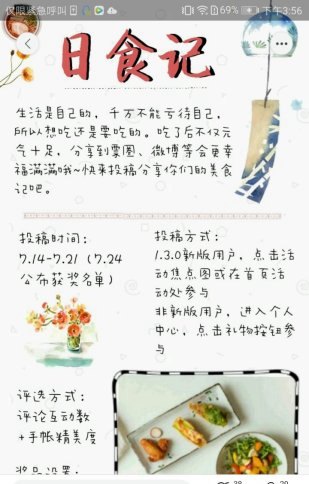 仅限紧急呼叫
69% 下午3:56
日食记
生活是自己的，千万不能亏待自己，
所以想吃还是要吃的。吃了后不仅元
气十足，分享到栗图、微博等会更幸
福满满哦~快来投稿分享你们的美食
记吧。
投稿时间：
7.14-7.21（7.24
公布获奖名单）
投稿方式：
1.3.0新版用户，点击活
动焦点图或在首页活
动处参与
非新版用户，进入个人
中心，点击礼物按钮参
与
评选方式：
评论互动数
+手帐精美度
奖品设置：
38
20